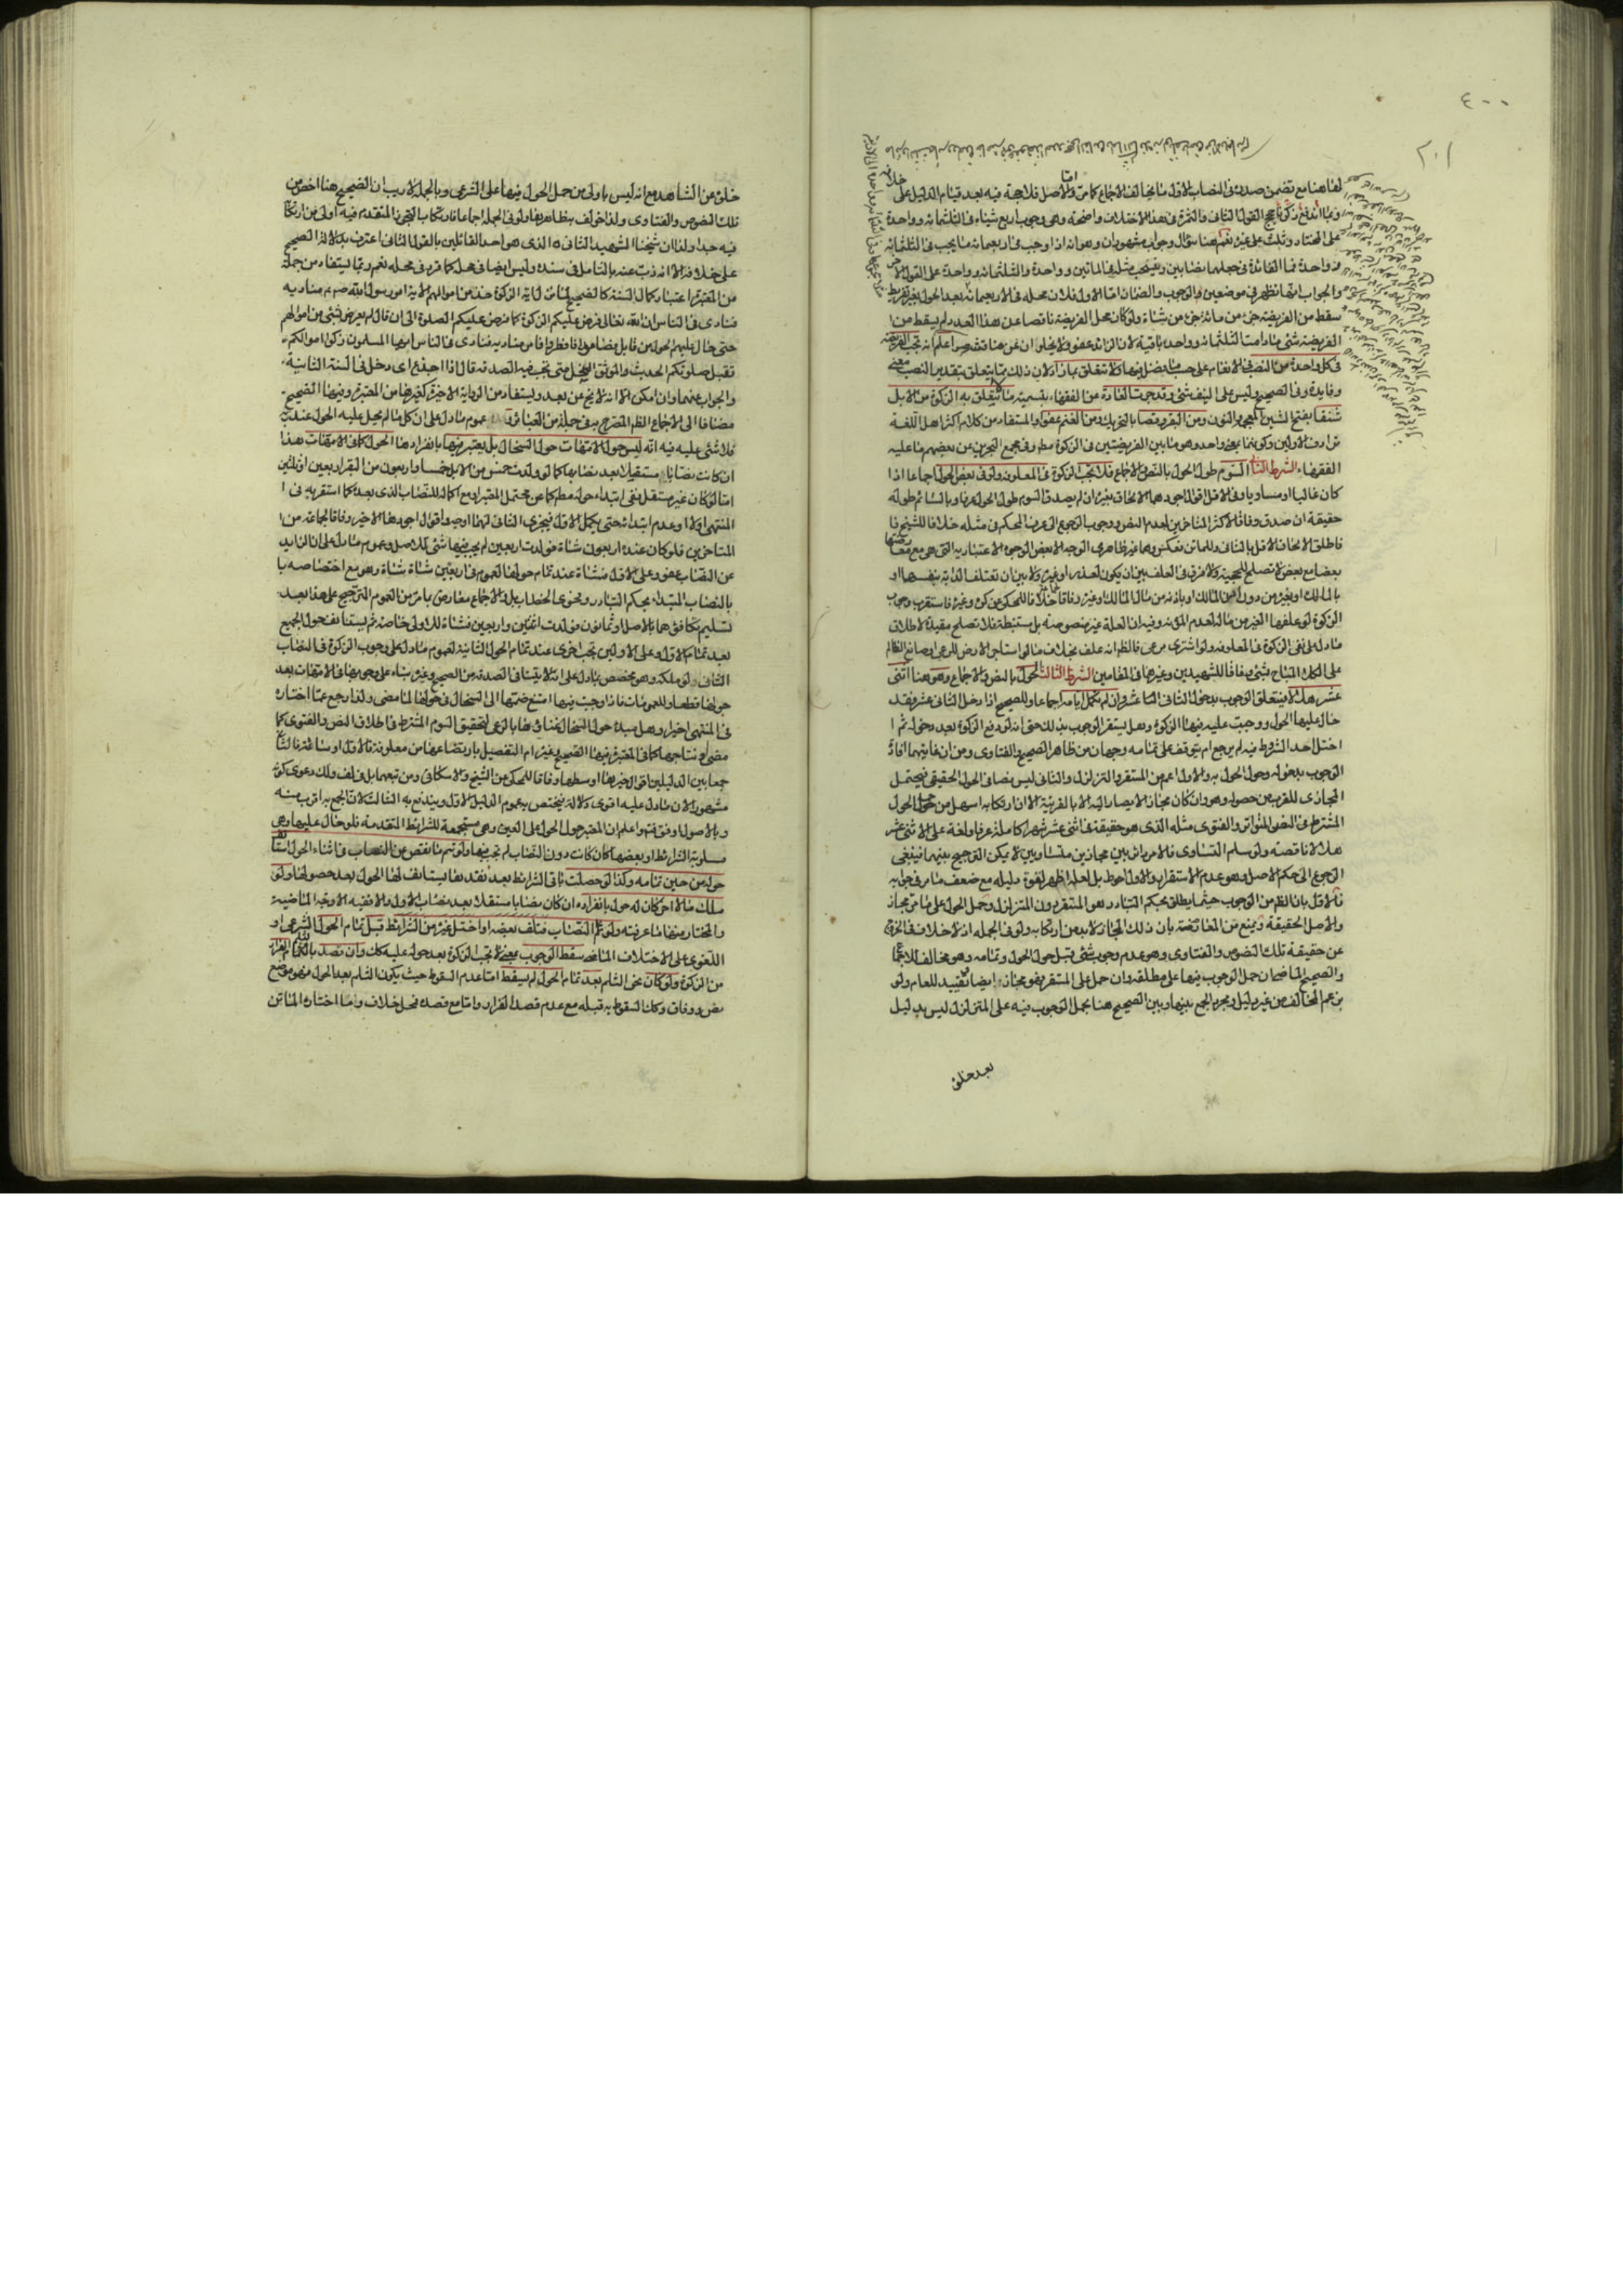 ٤٠٠
٢٠١
لها هنا مع تضمن صدره في النصاب الاول ما يخالف الاجماع كما مر والاصل فلا حجة فيه بعد قيام الدليل على
على المختار وثلث على غيره نعم هنا سؤال وجواب مشهوران وهو انه اذا وجب في اربعمائة ما يجب في الثلثمائة
وواحدة فما الفائدة في جعلهما نصابين وفيه يجب مثله في الماتين وواحدة والثلثمائة وواحدة على القول الاخر
والجواب انها تظهر في موضعين الوجوب والضمان اما الاول فلان محله في الاربعمائة بعد الحول بغير تفريط
سقط من الفريضة جزء من مائة جزء من شاة ولو كان محل الفريضة ناقصا عن هذا العدد لم يسقط من
الفريضة شئ ما دامت الثلثمائة وواحدة باقية لان الزائد عفو ولا يخلوان عن مناقشة واعلم انه تجب الفريضة
في كل واحدة من النصب في الانعام على حسب ما فصل فيها ولا تتعلق بما زاد لان ذلك مما يتعلق بتقدير النصب
وفايدة وفي الصحيح وليس على النيف شئ وقد جرت العادة من الفقهاء بتسمية ما لا يتعلق به الزكوة من الابل
شنقا بفتح الشين المعجمة والنون ومن البقر وقصا بالتحريك ومن الغنم عفوا والمستفاد من كلام اكثر اهل اللغة
ترادف الاولين وكونهما بمعنى واحد وهو ما بين الفريضتين في الزكوة مطلقا وفي مجمع البحرين عن بعضهم ما عليه
الفقهاء الشرط الثاني السوم طول الحول بالنص والاجماع فلا تجب الزكوة في المعلوفة ولو في بعض الحول اجماعا اذا
كان غالبا او مساويا وفي الاقل اقوال اجودها الالحاق بغيره ان لم يصدق السوم طول الحول عرفا وبالسائم طوله
حقيقة ان صدق وفاقا لاكثر المتاخرين لعدم النص ووجوب الرجوع الى عرف الحكم في مثله خلافا للشيخ
فاطلق الالحاق الاقل بالثاني وللماتن فعكس وهما غير ظاهري الوجه الا بعض الوجوه الاعتبارية التي هي مع معارضتها
بعضا مع بعض لا تصلح للحجية ولا فرق في العلف بين ان يكون لعذر او غيره ولا بين ان تعتلف الدابة بنفسها او
بالمالك او بغيره من دون اذن المالك او باذنه من مال المالك او غيره وفاقا
الزكوة لو علفها الغير من ماله لعدم المؤنة وفيه ان العلة غير منصوصة بل مستنبطة فلا تصلح مقيدة لاطلاق
ما دل على نفي الزكوة في المعلوفة ولو اشترى مرعى فالظاهر انه علف بخلاف ما لو استاجر الارض للرعى او صانع الظالم
على الكلاء المباح بشئ وفاقا للشهيدين وغيرهما في المقامين الشرط الثالث الحول بالنص والاجماع وهو هنا اثنى
عشر هلالا فيتعلق الوجوب بدخول الثاني عشر وان لم تكمل ايامه اجماعا وللصحيح اذا دخل الثاني عشر فقد
حال عليها الحول ووجبت عليه فيها الزكوة وهل يستقر الوجوب بذلك حتى انه لو دفع الزكوة بعد دخوله ثم
اختل احد الشروط فيه لم يرجع ام يتوقف على تمامه وجهان من ظاهر الصحيح والفتاوى ومن ان غايتهما افادة
الوجوب بدخوله وحول الحول به والاول اعم من المستقر والمتزلزل والثاني ليس نصا في الحول الحقيقي فيحتمل
المجازي للقرب من حصوله وهو وان كان مجازا لا يصار اليه الا بالقرينة الا ان ارتكابه اسهل من حمل الحول
المشترط في النص المتواتر والفتوى مثله الذي هو حقيقة في اثنى عشر شهرا كاملة عرفا ولغة على الاثنى عشر
هلالا ناقصة ولو سلم التساوى فالامر دائر بين مجازين متساويين لا يمكن الترجيح بينهما فينبغي
الرجوع الى حكم الاصل وهو عدم الاستقرار والاول احوط بل لعله اظهر لقوة دليله مع ضعف ما مر في جوابه
فالاول بان الظاهر من الوجوب حيثما يطلق بحكم التبادر هو المستقر دون المتزلزل وحمل الحول على ما مر مجاز
والاصل الحقيقة ويمنع من المعارضة بان ذلك المجاز لا بد من ارتكابه ولو في الجملة اذ لا خلاف في الخروج
عن حقيقة تلك النصوص والفتاوى وهو عدم وجوب شئ قبل حول الحول وتمامه وهو مخالف للاجماع
والصحيح الماضيان حمل الوجوب فيها على مطلقه وان حمل على المستقر فهو مجاز ايضا تقييد للعام ولو
بزعم المخالف من غير دليل ومجرد الجمع بينها وبين الصحيح هنا بحمل الوجوب فيه على المتزلزل ليس بدليل
بعد خلوه
خلوه عن الشاهد مع انه ليس باولى من حمل الحول فيها على الشرعي وبالجملة لا ريب ان الصحيح هنا اخص من
تلك النصوص والفتاوى ولذا خولف بظاهرها ولو في الجملة اجماعا فارتكاب التجوز المتقدم فيه اولى من ارتكابه
فيه جدا ولذا ان شيخنا الشهيد الثاني الذي هو احد القائلين بالقول الثاني اعترف بدلالة الصحيح
على خلافه الا انه ذب عنه بالتامل في سنده وليس ايضا في محله كما قرر في محله نعم ربما يستفاد من جملة
من المعتبرة اعتبار كمال السنة كالصحيح لما نزلت اية الزكوة خذ من اموالهم الاية امر رسول الله ص مناديه
فنادى في الناس ان الله تعالى فرض عليكم الزكوة كما فرض عليكم الصلوة الى ان قال لم يعرض لشئ من اموالهم
حتى حال عليهم الحول من قابل فصاموا وافطروا فامر مناديه فنادى في الناس ايها المسلمون زكوا اموالكم
تقبل صلوتكم الحديث والموثق النخل متى تجب فيه الصدقة قال اذا
والجواب عنهما وان امكن الا انه لا يخ عن بعد ويستفاد من الرواية الاخيرة كغيرها من المعتبرة وفيها الصحيح
مضافا الى الاجماع الظاهر المصرح به في جملة من العبائر عموم ما دل على ان كل ما لم يحل عليه الحول عند ربه
فلا شئ عليه فيه انه ليس حول الامهات حول السخال بل يعتبر فيها بانفرادها الحول كما في الامهات هذا
ان كانت نصابا مستقلا بعد نصابها كما لو ولدت خمس من الابل خمسا واربعون من البقر اربعين او ثلثين
اما لو كان غير مستقل ففي ابتداء حوله مطلقا
المنتهى اولا وعدم ابتدائه حتى يكمل الاول فيجزى الثاني لهما اوجه واقوال اجودها الاخير وفاقا لجماعة من
المتاخرين فلو كان عنده اربعون شاة فولدت اربعين لم يجب فيها شئ للاصل وعموم ما دل على ان الزايد
عن النصاب عفو وعلى الاول فشاة عند تمام حولها لعموم في اربعين شاة شاة وهو مع اختصاصه
بالنصاب المبتداء بحكم التبادر وفحوى الخطاب بل والاجماع معارض بما مر من العموم الترجيح على هذا بعد
تسليم تكافؤهما بالاصل او ثمانون فولدت اثنين واربعين فشاة للاولى خاصة ثم يستانف حول الجميع
بعد تمام الاول وعلى الاولين تجب اخرى عند تمام الحول الثانية لعموم ما دل على وجوب الزكوة في النصاب
الثاني لو ملكه وهو مخصص بما دل على انه لا يثنى في الصدقة من الصحيح وغيره بناء على وجوبها في الامهات بعد
حولها قطعا وللعمومات فاذا وجبت فيها امتنع ضمها الى السخال في حولها لما مضى ولذا رجع عما اختاره
في المنتهى اخيرا وهل مبدء حول السخال غناؤها بالرعى لتحقيق السوم المشترط في اطلاق النص والفتوى كما
مضى او نتاجها كما في المعتبرة فيها الصحيح وغيره ام التفصيل بارتضاعها من معلوفة فالاول او سائمة فالثاني
جمعا بين الدليلين اقوال خيرها اوسطها وفاقا للمحكى عن الشيخ والاسكافي ومن تبعهما بل في لف ولك دعوى كونه
مشهورا لان ما دل عليه اقوى دلالة فيختص به عموم الدليل الاول ويندفع به الثالث
وبالاصول اوفق ثم واعلم ان المعتبر حول الحول على العين وهي مستجمعة للشرايط المتقدمة فلو حال عليها وهي
مسلوبة الشرايط او بعضها كان كانت دون النصاب لم تجب فيها ولو تم ما نقص من النصاب في اثناء الحول استانف
حوله من حين تمامه وكذا لو حصلت باقي الشرايط بعد فقدها يستانف لها الحول بعد حصولها ولو
ملك مالا اخر كان له حول بانفراده ان كان نصابا مستقلا بعد نصاب الاول والا ففيه الاوجه الماضية
والمختار منها ما عرفته ولو ثلم النصاب فتلف بعضه او اختل غيره من الشرائط قبل تمام الحول الشرعي او
اللغوى على الاختلاف الماضي سقط الوجوب بمعنى لا تجب الزكوة بعد حوله عليه كك وان قصد بالثلم الفرار
من الزكوة ولو كان نحو الثلم بعد تمام الحول لم يسقط اما عدم السقوط حيث يكون الثلم بعد الحول فهو موضع
نص ووفاق وكذا السقوط به قبله مع عدم قصد الفرار واما مع قصده فمحل خلاف وما اختاره الماتن